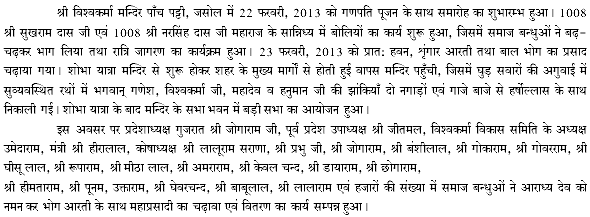 श्री विश्वकर्मा मन्दिर पाँच पट्टी, जसोल में 22 फरवरी, 2013 को गणपति पूजन के साथ समारोह का शुभारम्भ हुआ। 1008
श्री सुखराम दास जी एवं 1008 श्री नरसिंह दास जी महाराज के सान्निध्य में बोलियों का कार्य शुरू हुआ, जिसमें समाज बन्धुओं ने बढ़-
चढ़कर भाग लिया तथा रात्रि जागरण का कार्यक्रम हुआ। 23 फरवरी, 2013 को प्रात: हवन, श्रृंगार आरती तथा बाल भोग का प्रसाद
चढ़ाया गया। शोभा यात्रा मन्दिर से शुरू होकर शहर के मुख्य मार्गों से होती हुई वापस मन्दिर पहुँची, जिसमें घुड़ सवारों की अगुवाई में
सुव्यवस्थित रथों में भगवान् गणेश, विश्वकर्मा जी, महादेव व हनुमान जी की झांकियाँ दो नगाड़ों एवं गाजे बाजे से हर्षोल्लास के साथ
निकाली गई। शोभा यात्रा के बाद मन्दिर के सभा भवन में बड़ी सभा का आयोजन हुआ।
इस अवसर पर प्रदेशाध्यक्ष गुजरात श्री जोगाराम जी, पूर्व प्रदेश उपाध्यक्ष श्री जीतमल, विश्वकर्मा विकास समिति के अध्यक्ष
उमेदाराम, मंत्री श्री हीरालाल, कोषाध्यक्ष श्री लालूराम सराणा, श्री प्रभु जी, श्री जोगाराम, श्री बंशीलाल, श्री गोकाराम, श्री गोवरराम, श्री
घीसू लाल, श्री रूपाराम, श्री मीठा लाल, श्री अमराराम, श्री केवल चन्द, श्री डायाराम, श्री छोगाराम,
श्री हीमताराम, श्री पूनम, उक्ताराम, श्री घेवरचन्द, श्री बाबूलाल, श्री लालाराम एवं हजारों की संख्या में समाज बन्धुओं ने आराध्य देव को
नमन कर भोग आरती के साथ महाप्रसादी का चढ़ावा एवं वितरण का कार्य सम्पन्न हुआ।